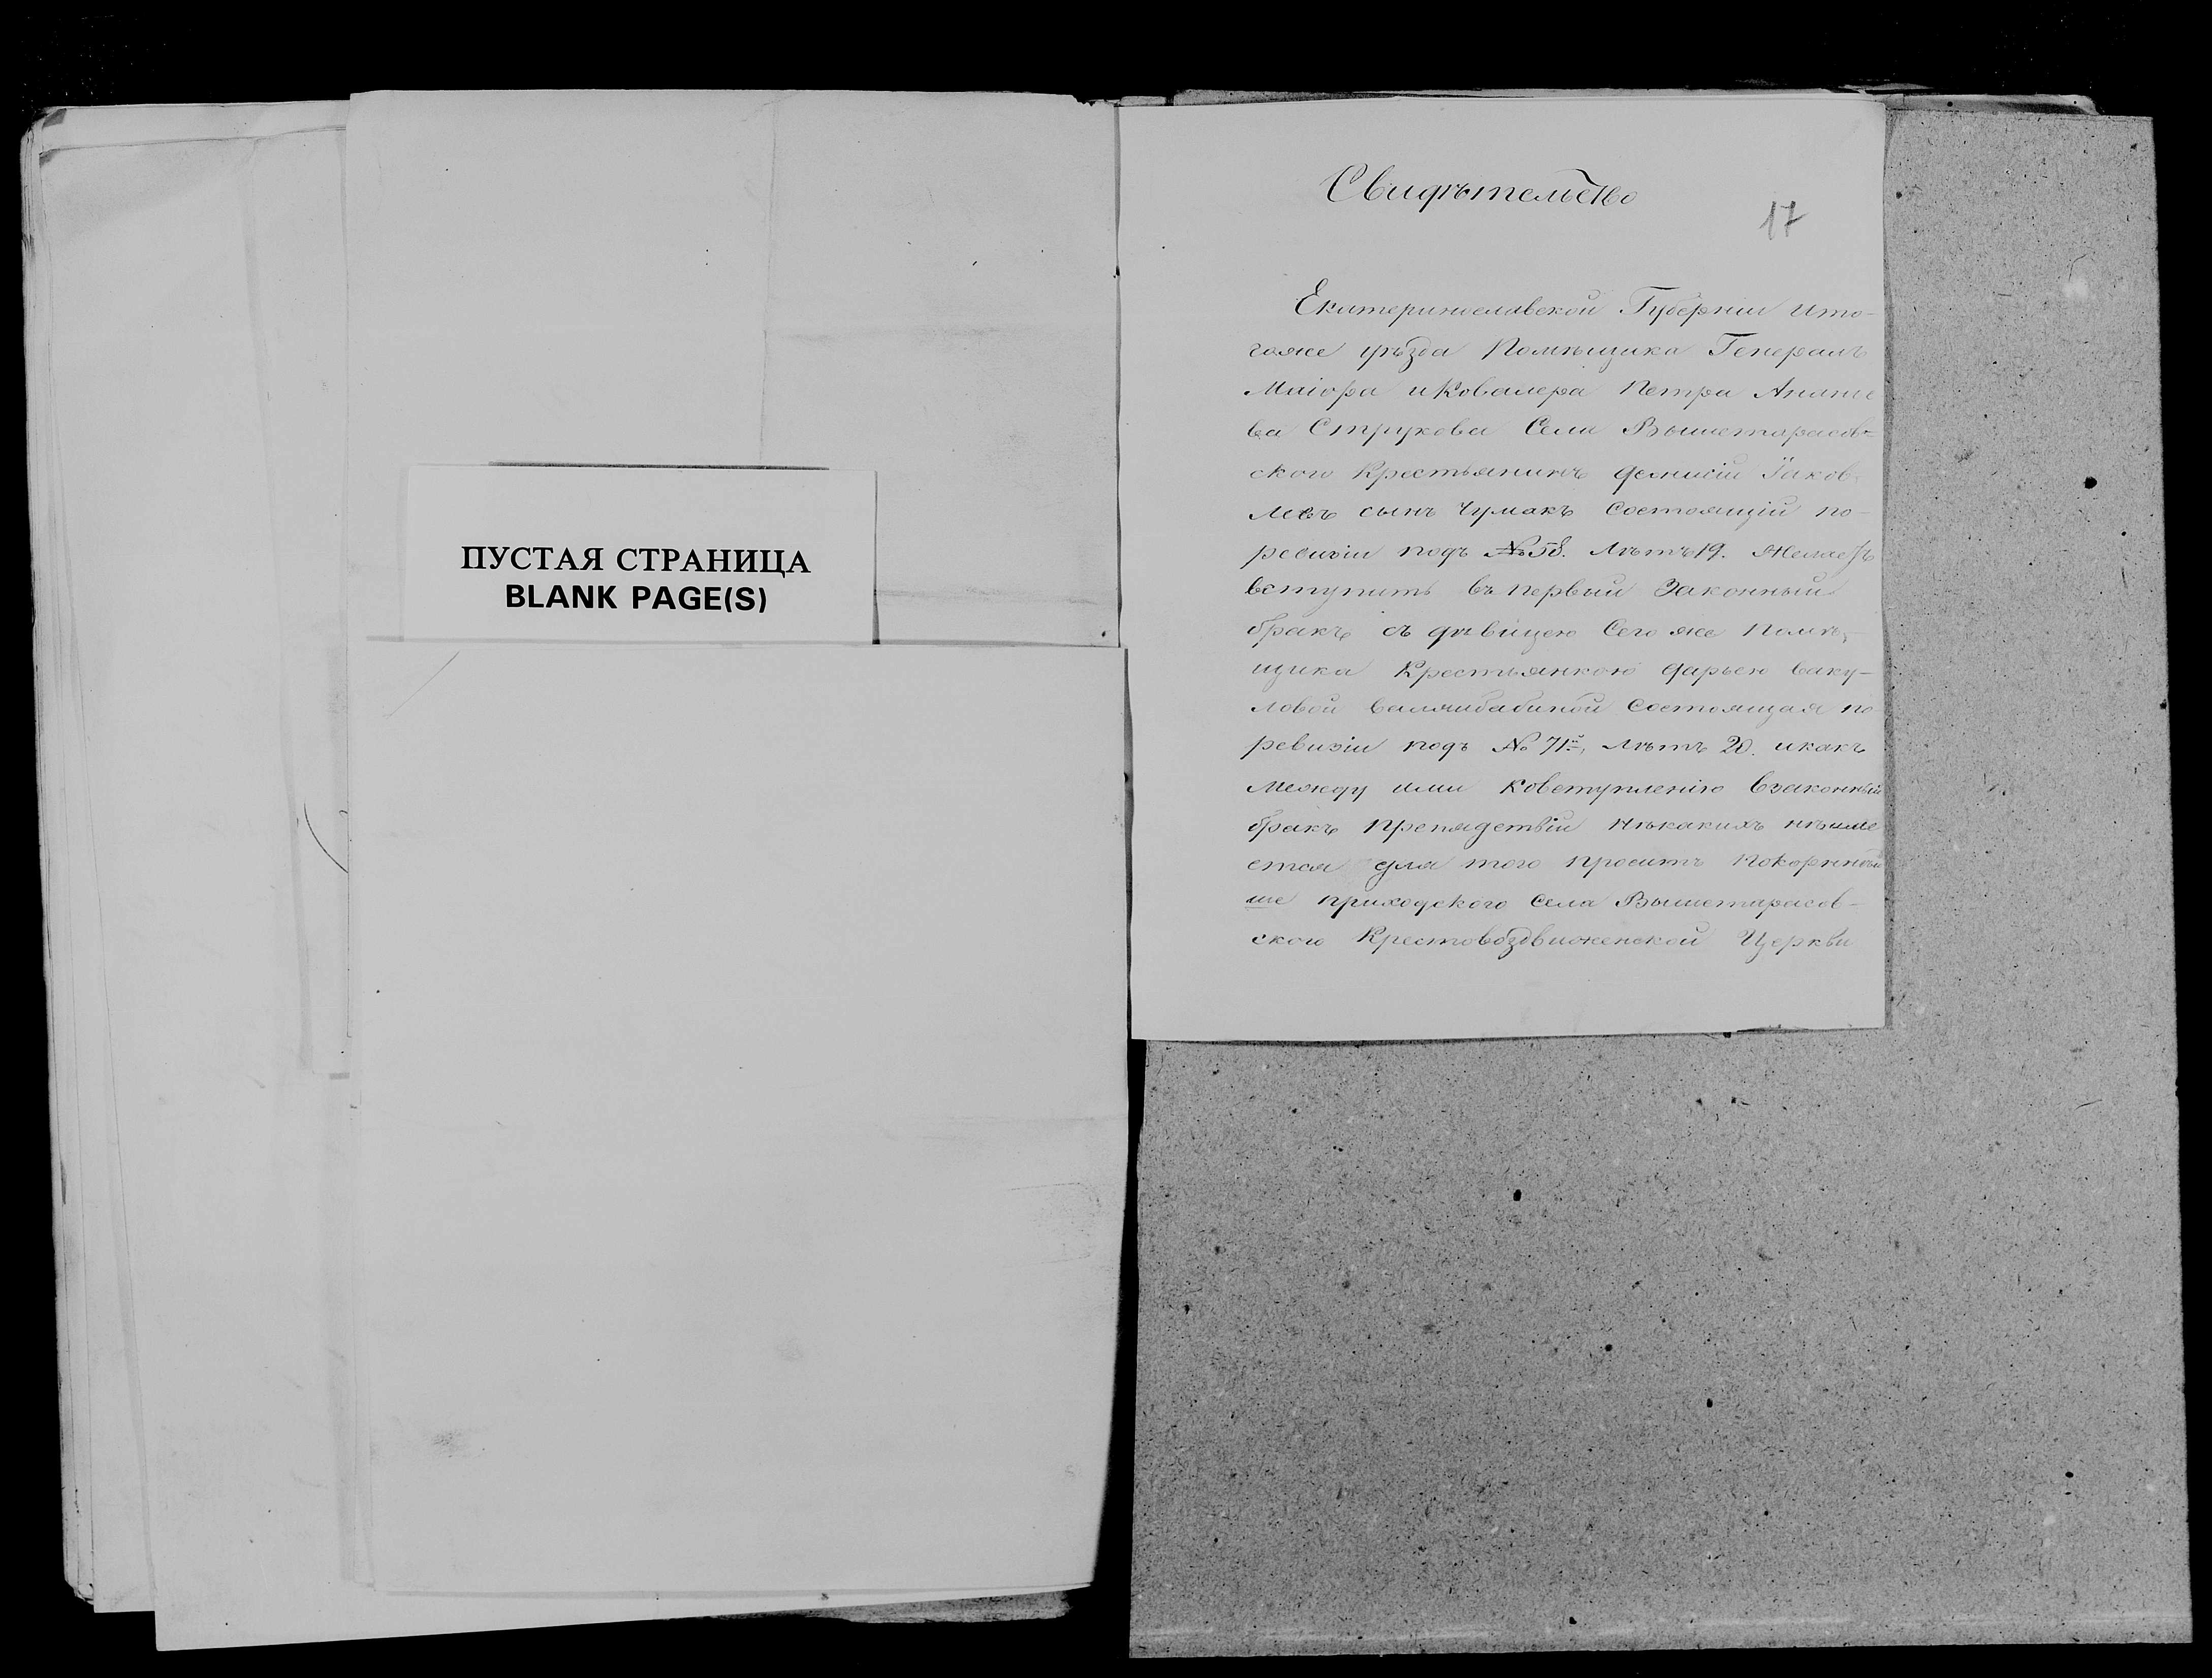 ПУСТАЯ СТРАНИЦА
BLANK PAGE(S)
Свидѣтельство
17
Екатеринославской Губерніи ито-
гоже уѣзда Помѣщика Генералъ
Маіора иКовалера Петра Ананіе
ва Струкова Села Вышетарасов=
ского Крестьянинъ Денисій Іаков
левъ сынъ Чумакъ Состоящій по-
ревизіи подъ №58. Лѣтъ 19. Желаетъ
вступить въ первый Законный
бракъ съ дѣвицею Сего же Помѣ-
щика Крестьянкою Дарьею Ваку-
ловой состоящая по
ревизіи подъ № 71й, Лѣтъ 20. икакъ
Между ими Ковступленію взаконный
бракъ препядствіи нѣкакихъ нѣиме
ется для того проситъ покорнѣй
ше приходского Села Вышетарасов-
ского Крестовоздвиженской Церкви